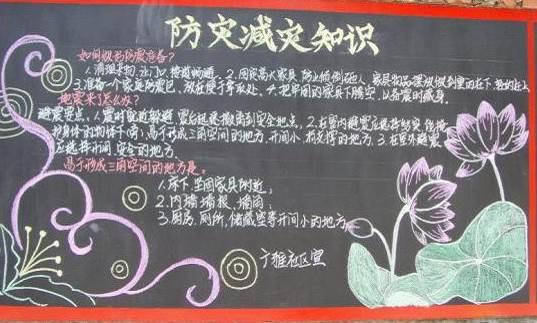 防灾减灾知识
如何做好防震准备？
1.清理杂物,让门口,楼道畅通。2.固定高大家具,防止倾倒砸人,家具物品摆放做到重的在下,轻的在上
3.准备一个家庭防震包,放在便于拿取处。4.把牢固的家具下腾空,以备震时藏身。
地震来了怎么办?
避震要点,1.震时就近躲避,震后迅速撤离到安全地点,2.在室内避震应选择结实、能掩
护身体的物体下(旁)易于形成三角空间的地方,开间小、有支撑的地方,3.在室外避震
应选择开阔,安全的地方
易于形成三角空间的地方是。
1.床下,坚固家具附近;
2.内墙墙根、墙角;
3.厨房,厕所,储藏室等开间小的地方。
宁雅社区宣